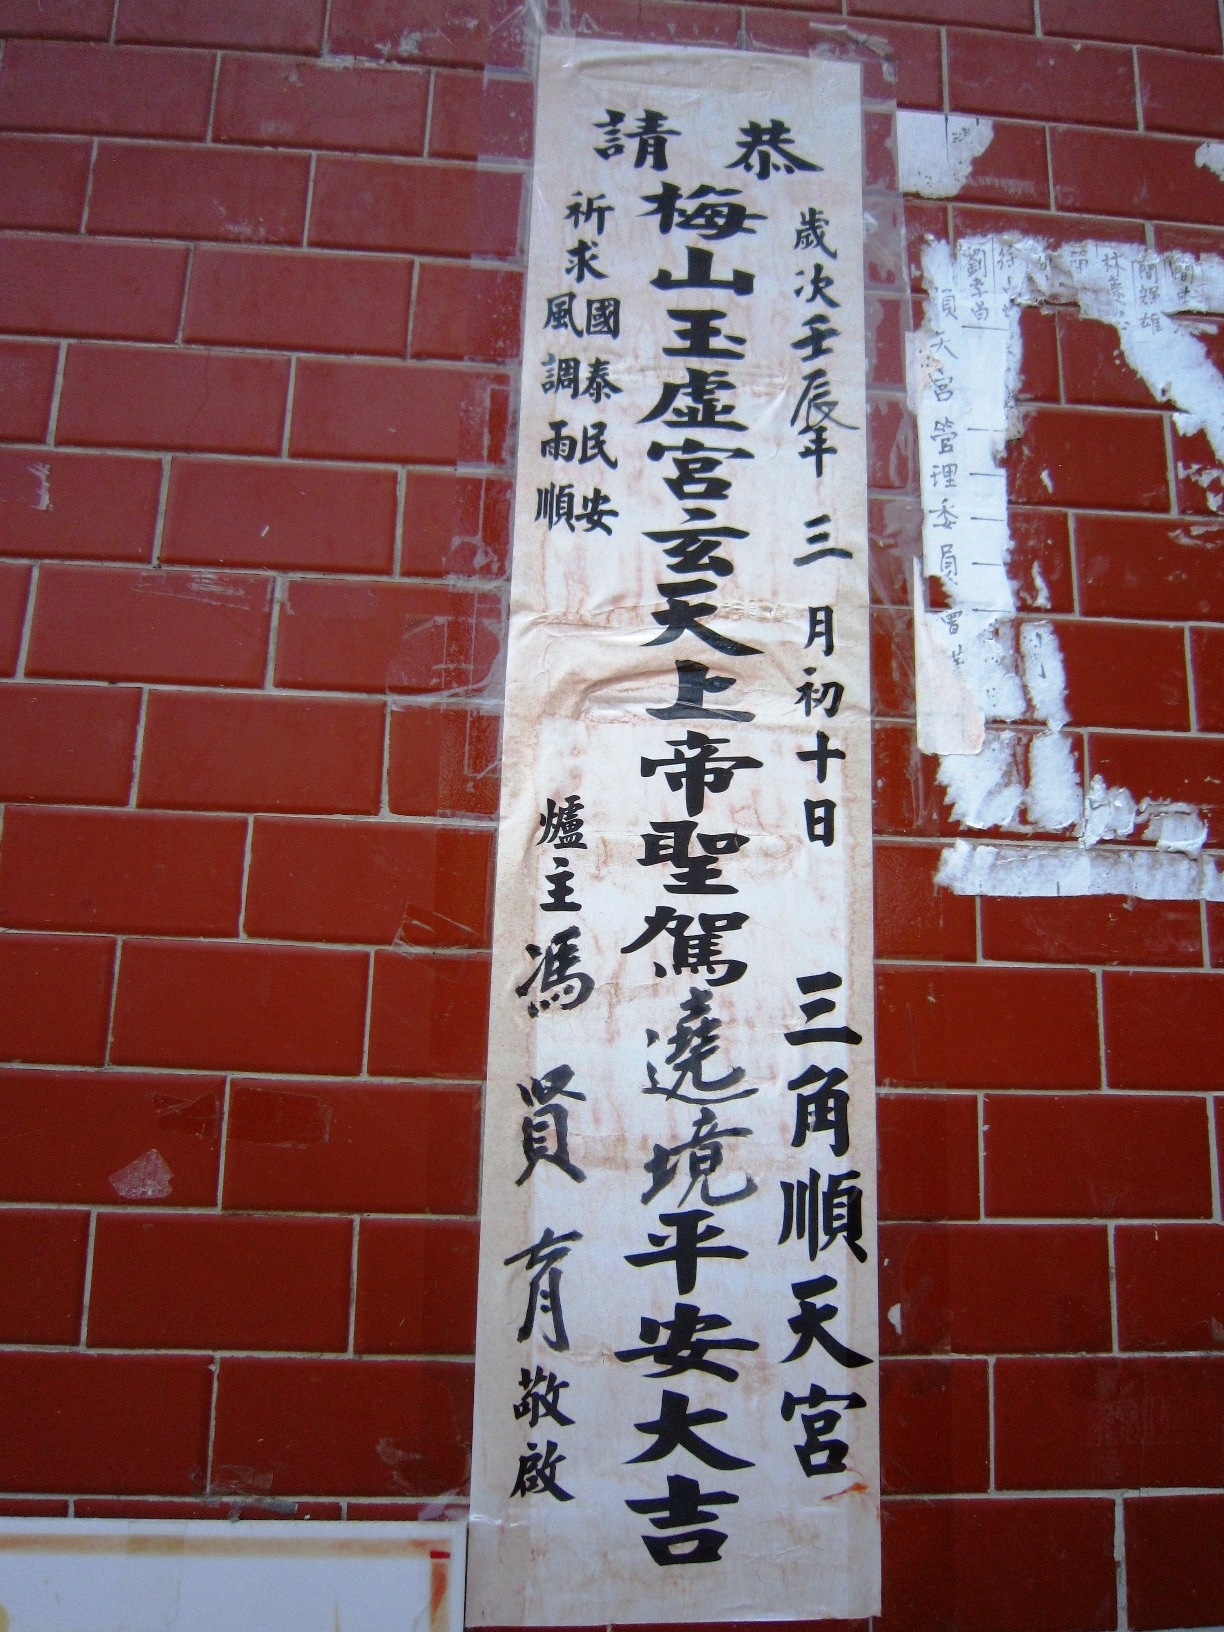 恭請
歲次壬辰年三月初十日 三角順天宮
梅山玉虛宮玄天上帝聖駕遶境平安大吉
祈求
國泰民安
風調雨順
爐主馮賢育敬啟
簡
簡錫雄
林
簡
徐
劉孝昌
順天宮管理委員會